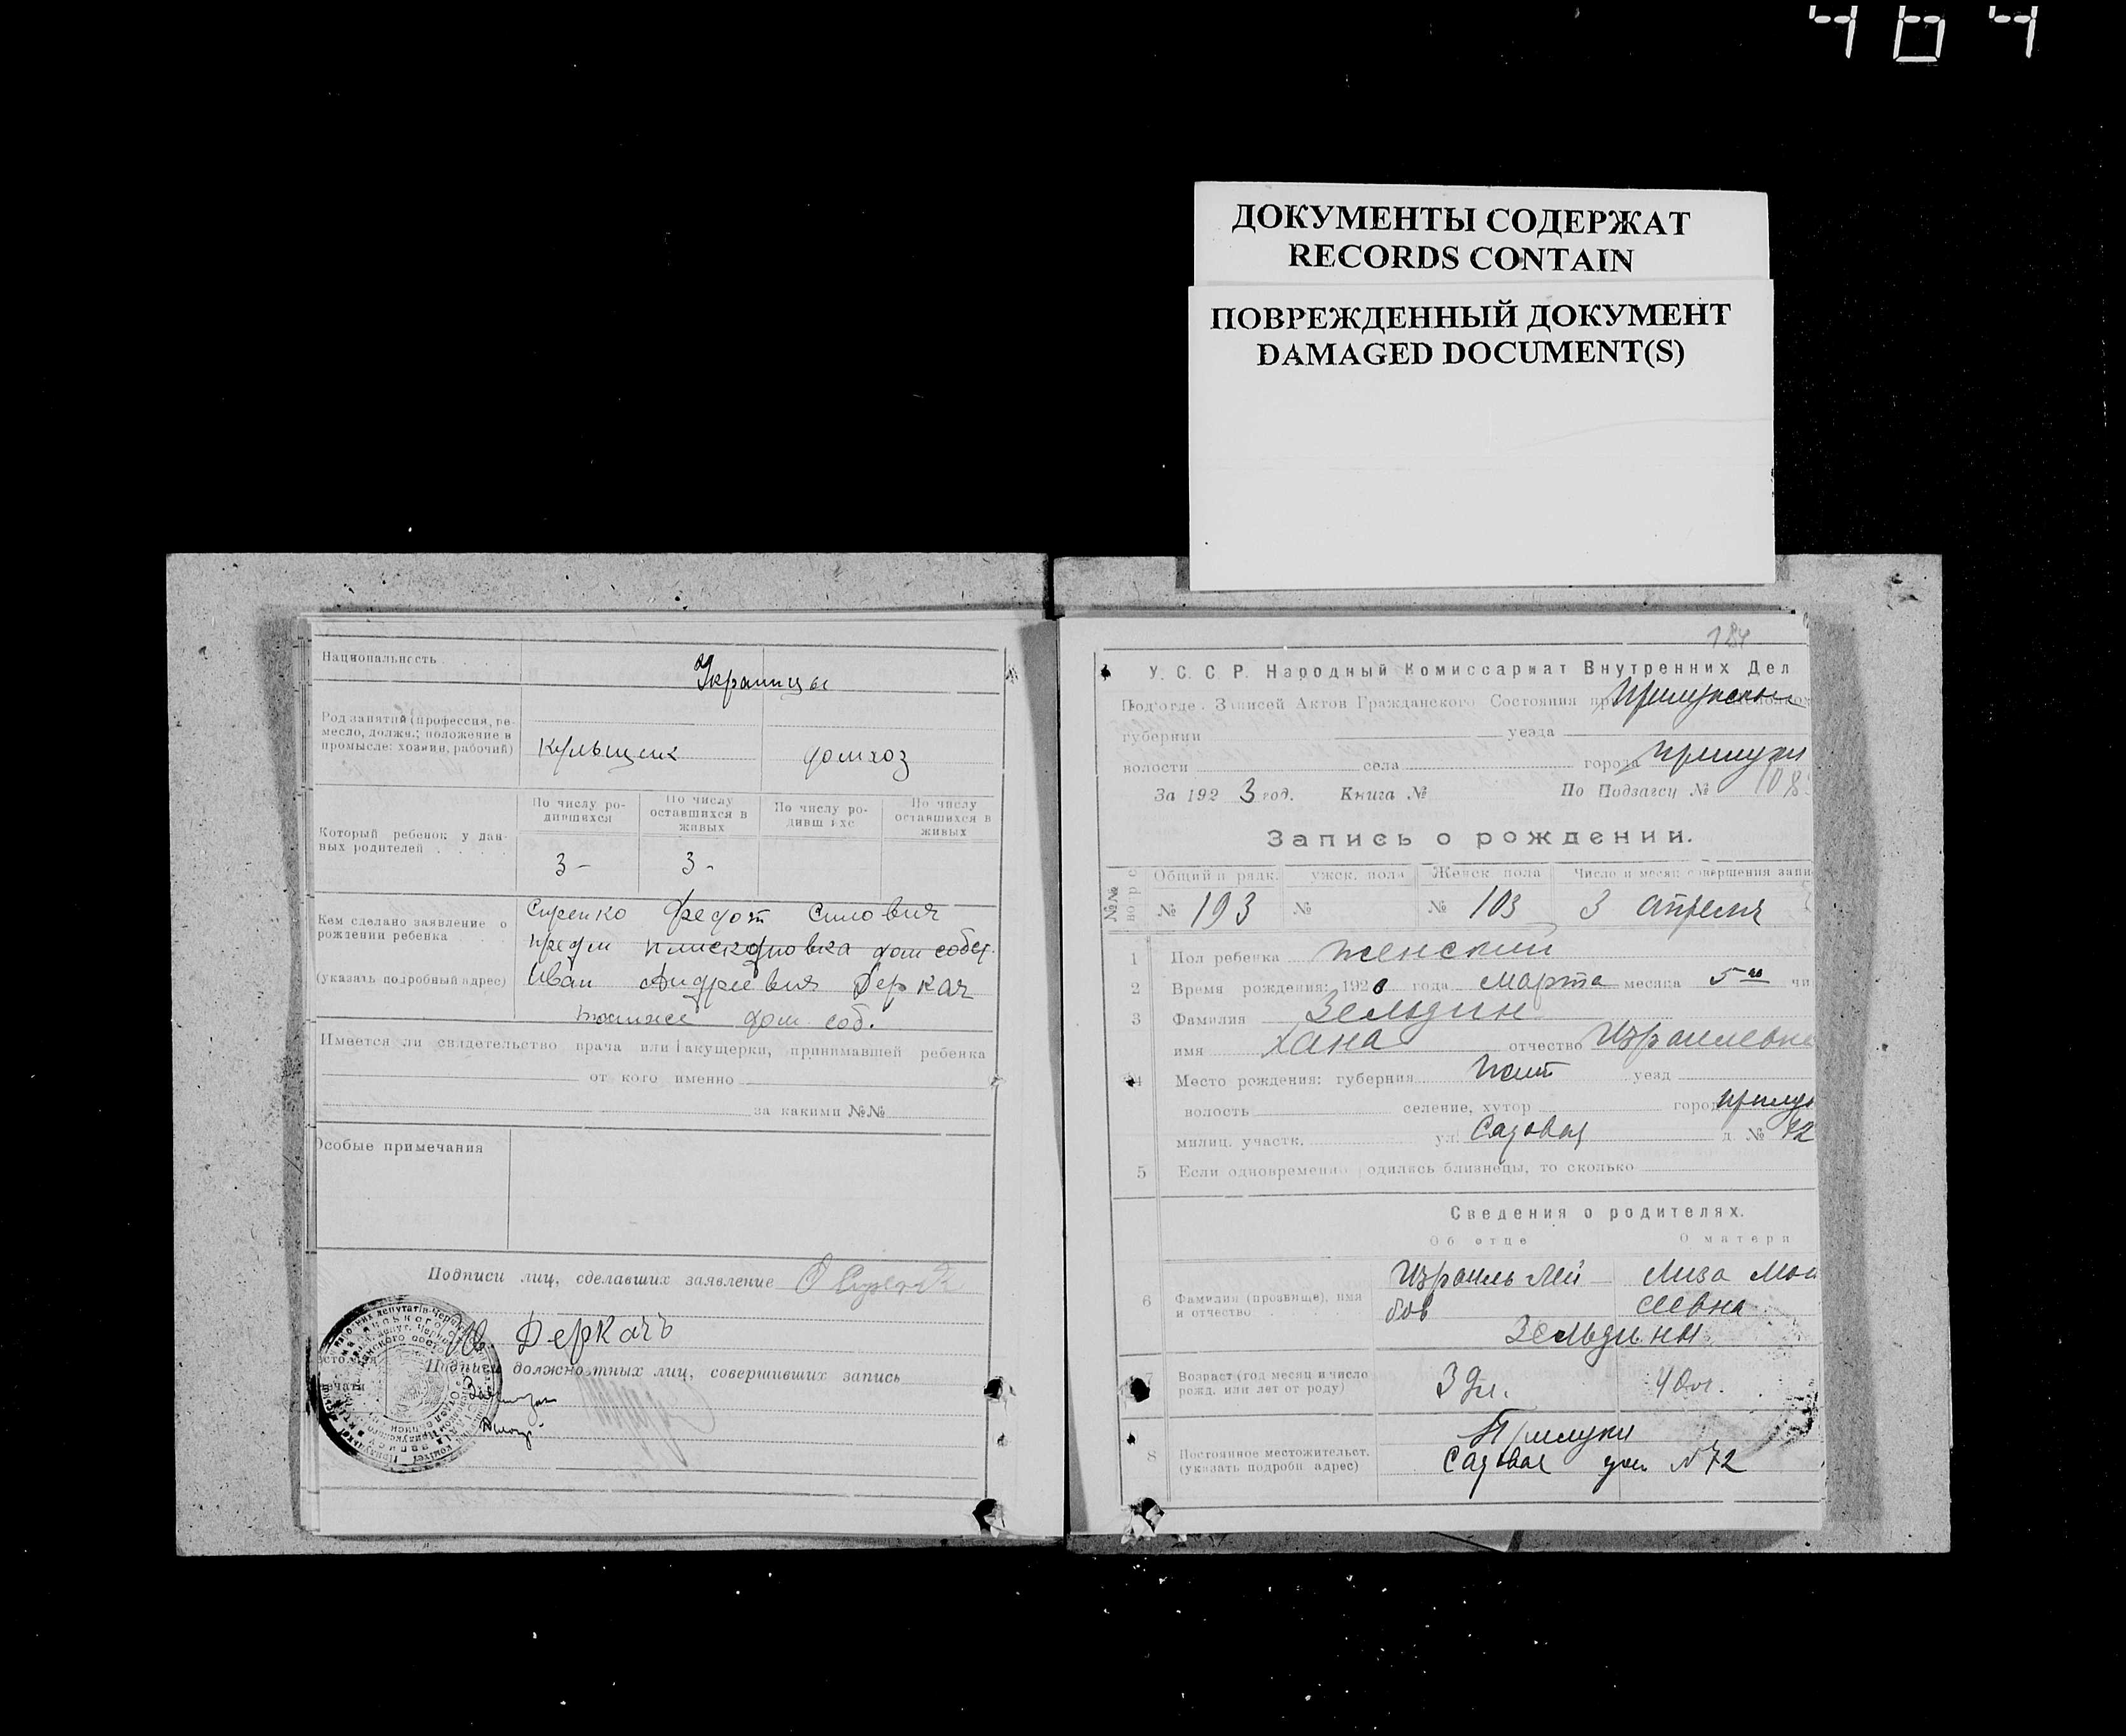 464
ДОКУМЕНТЫ СОДЕРЖАТ
RECORDS CONTAIN
ПОВРЕЖДЕННЫЙ ДОКУМЕНТ
DAMAGED DOCUMENT(S)
Национальность Украинцы
Род занятия (профессия, ре-
месло, должн.; положение в
промысле: хозяин, рабочий)
домхоз
По числу ро-
дившихся
По числу
оставшихся в
живых
По числу ро-
дивш ихс
По числу
оставшихся в
живых
Который ребенок у дан-
ных родителей
3 - 3 -
Кем сделано заявление о
рождении ребенка
(указать подробный адрес)
Сиренко Федот Силович
дом собст.
Иван Андреевич Деркач
дом соб.
Имеется ли свидетельство врача или акушерки, принимавшей ребенка
от кого именно
за какими №№
Особые примечания
Подписи лиц, сделавших заявление
Ив. Деркачъ
Подписи должностных лиц, совершивших запись
184
У. С. С Р. Народный Комиссариат Внутренних Дел
Под'отде. Записей Актов Гражданского Состояния пр Прилукском
губернии уезда
волости села города Прилуки
За 192 3 год. Книга № По Подзагсу № 108
Запись о рождении.
№№
Общий п рядк. ужск. пола Женск пола Число и месяц совершения запи
№ 193 № № 103 3 Апреля
1 Пол ребенка женский
2 Время рождения: 192 года Марта месяца 5го чи
3 Фамилия Зельдин
имя Хана отчество Израилевна
4 Место рождения: губерния Полт уезд
волость селение, хутор город Прилу
милиц. участк. ул. Садовая д. № 72
5 Если одновременно одились близнецы, то сколько
Сведения о родителях.
Об отце О матери
6 Фамилия (прозвище), имя
и отчество
Израиль Лей Лиза Мои
бов сеевна
Зельдины
7 Возраст (год месяц и число
рожд. или лет от роду)
39л. 40л.
8 Постоянное местожительст.
(указать подробн адрес)
Прилуки
Садовая дом №72